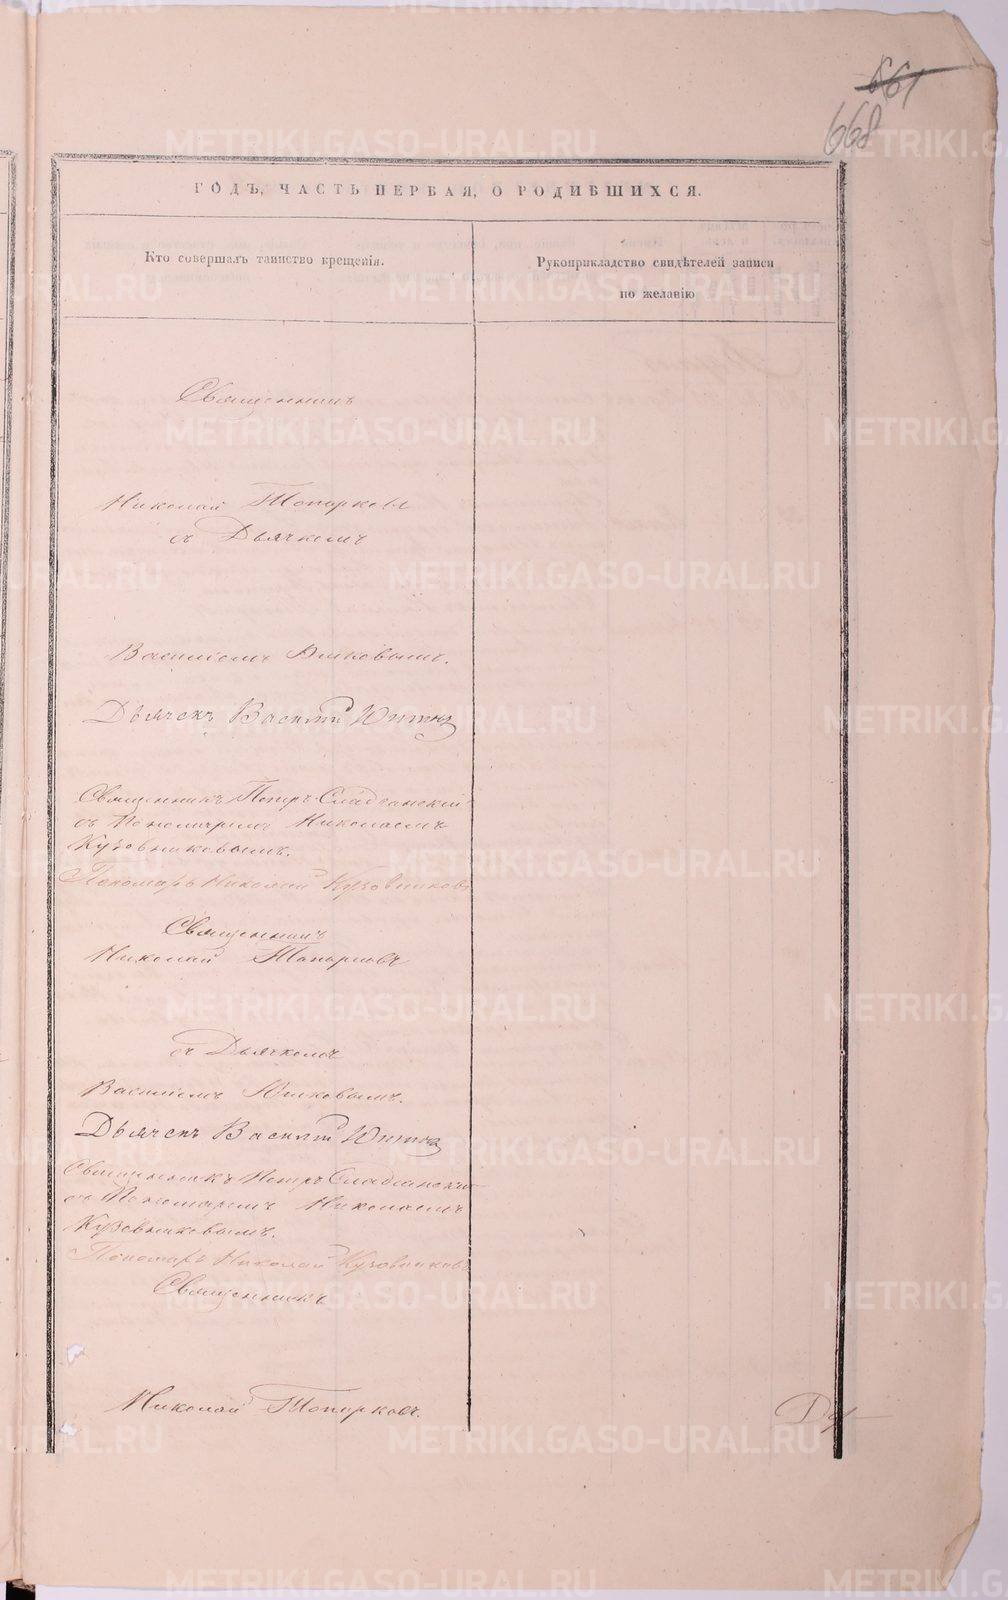 661
668
ГОДЪ, ЧАСТЬ ПЕРВАЯ, О РОДИВШИХСЯ.
Кто совершалъ таинство крещенія.
Рукоприкладство свидѣтелей записи
по желанію
Священникъ
Николай Топорковъ
съ Дьячкомъ
Василіемъ
Дьячекъ Василій
Священникъ Петръ
съ Пономаремъ Николаемъ
Кузовниковымъ.
Пономарь Николай Кузовниковъ
Священникъ
Николай Топорковъ
съ Дьячкомъ
Василіемъ
Дьячекъ Василій
Священникъ Петръ
съ Пономаремъ Николаемъ
Кузовниковымъ.
Пономарь Николай Кузовниковъ
Священникъ
Николай Топорковъ.
METRIKI.GASO-URAL.RU